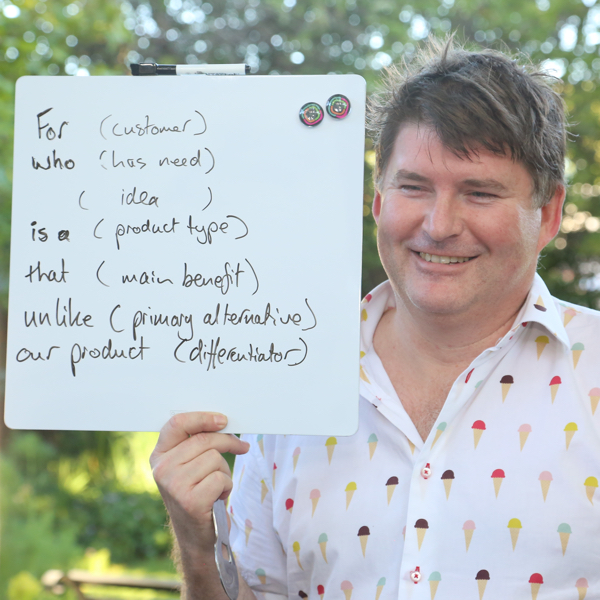 For (customer)
who (has need)
( idea )
is a (product type)
that ( main benefit)
unlike (primary alternative)
our product (differentiator)